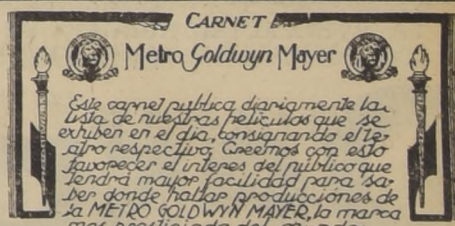 CARNET
Metro Goldwyn Mayer
Este carnet publica diariamente la
lista de nuestras peliculas que se
exhiben en el dia, consignando el te-
atro respectivo; Creemos con esto
favorecer el interes del publico que
tendrá mayor facilidad para sa-
ber donde hallar producciones de
la METRO GOLDWYN MAYER, la marca
mas prestigiada del mundo